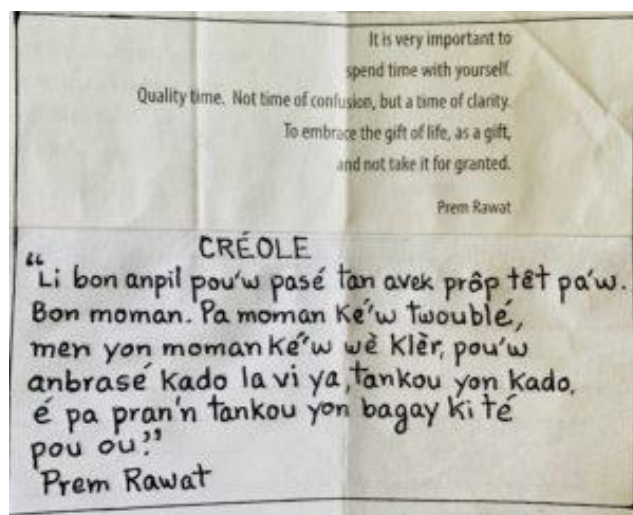 It is very important to
spend time with yourself.
Quality time. Not time of confusion, but a time of clarity.
To embrace the gift of life, as a gift,
and not take it for granted.
Prem Rawat
CRÉOLE
“Li bon anpil pou'w pasé tan avek prôp têt pa'w.
Bon moman. Pa moman ké'w twoublé,
men yon moman ké'w wè klèr, pou'w
anbrasé kado la vi ya, tankou yon kado,
é pa pran'n tankou yon bagay ki té
pou ou.”
Prem Rawat